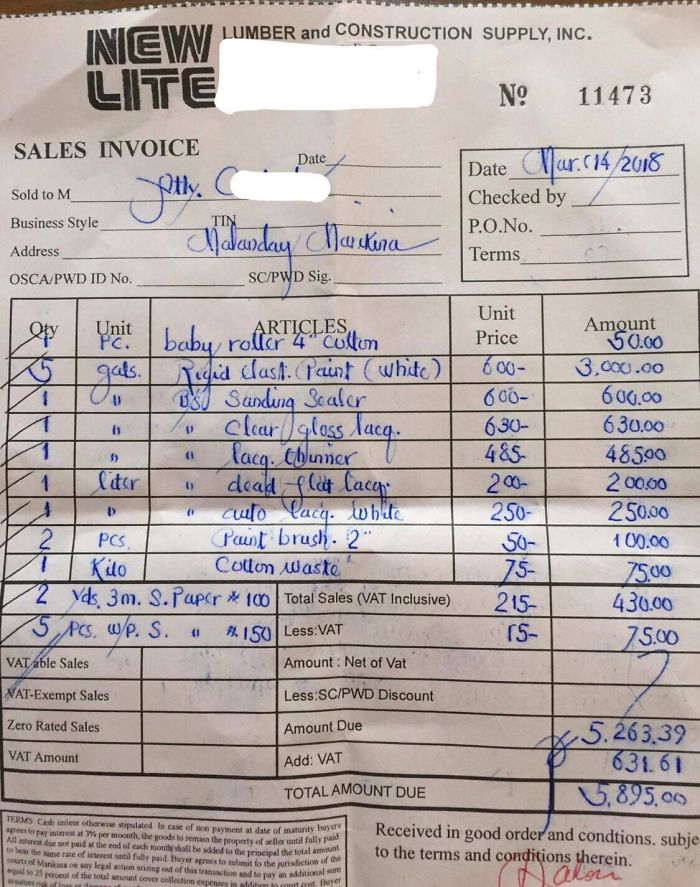 NEW LITE LUMBER and CONSTRUCTION SUPPLY, INC.
Nº 11473
SALES INVOICE
Date
Date Mar. 14/2018
Sold to M
Checked by
Business Style TIN
P.O.No.
Address Malanday Marikina
Terms
OSCA/PWD ID No. SC/PWD Sig.
Qty Unit ARTICLES Unit Price Amount
1 Pc. baby roller 4" cotton 50.00
5 gals. Rigid elast. Paint (white) 600- 3,000.00
1 " BSJ Sanding Sealer 600- 600.00
1 " " Clear gloss lacq. 630- 630.00
1 " " lacq. thinner 485- 485.00
1 liter " dead flat lacq. 200- 200.00
1 " " auto lacq. white 250- 250.00
2 pcs. Paint brush. 2" 50- 100.00
1 Kilo Cotton waste 75- 75.00
2 yds. 3m. S. Paper # 100 Total Sales (VAT Inclusive) 215- 430.00
5 pcs. w/p. S. " # 150 Less:VAT 15- 75.00
VATable Sales Amount : Net of Vat
VAT-Exempt Sales Less:SC/PWD Discount
Zero Rated Sales Amount Due 5,263.39
VAT Amount Add: VAT 631.61
TOTAL AMOUNT DUE 5,895.00
TERMS: Cash unless otherwise stipulated. In case of non payment at date of maturity buyers
agrees to pay interest at 3% per moonth, the goods to remain the property of seller until fully paid.
All interest due not paid at the end of each month shall be added to the principal the total amount.
to bear the same rate of interest until fully paid. Buyer agrees to submit to the jurisdiction of the
courts of Marikina on any legal action arising out of this transaction and to pay an additional sum
equal to 25 percent of the total amount cover collection expenses in addition to court cost. Buyer
Received in good order and condtions. subje
to the terms and conditions therein.